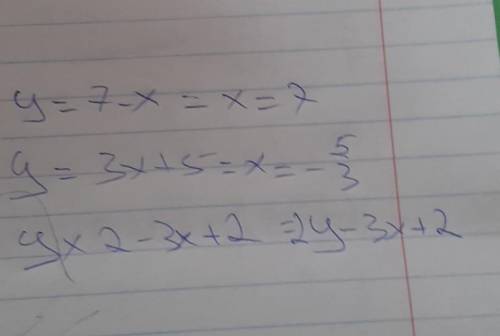 y = 7 - x = x = 7
y = 3x + 5 = x = - 5/3
y x 2 - 3x + 2 = 2y - 3x + 2